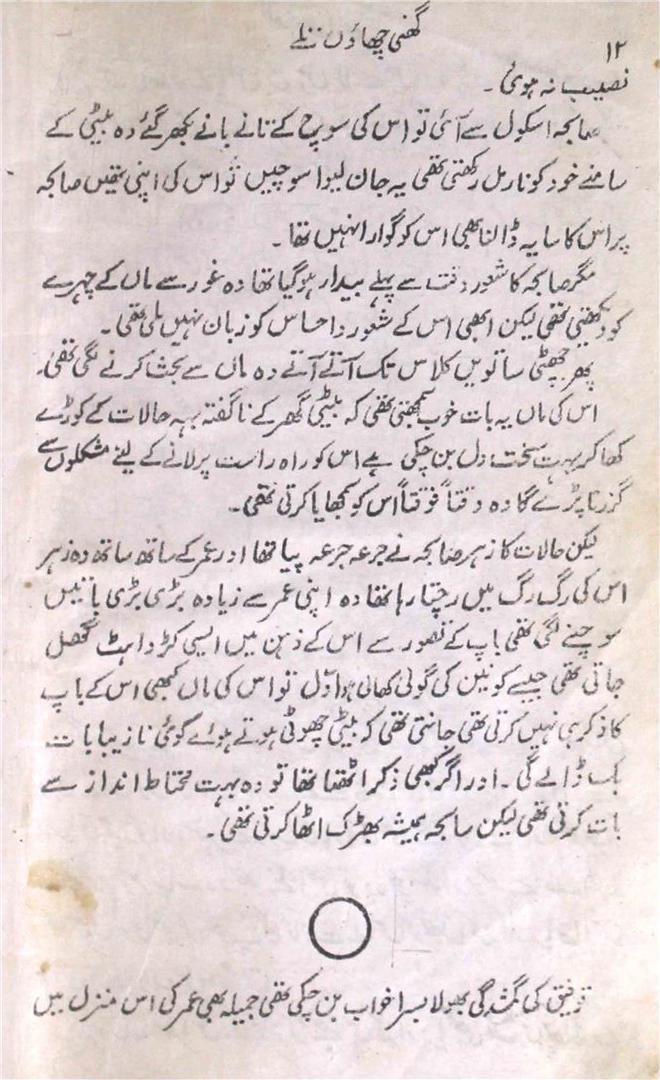 گھنی چھاؤں تلے
۱۲
نصیب نہ ہوئی۔
صابحہ اسکول سے آئی تو اس کی سوچ کے تانے بانے بکھر گئے وہ بیٹی کے
سامنے خود کو نارمل رکھتی تھی یہ جان لیوا سوچیں تو اس کی اپنی تھیں صابحہ
پر اس کا سایہ ڈالنا بھی اس کو گوارا نہیں تھا۔
مگر صابحہ کا شعور وقت سے پہلے بیدار ہو گیا تھا وہ غور سے ماں کے چہرے
کو دیکھتی تھی لیکن ابھی اس کے شعور و احساس کو زبان نہیں ملی تھی۔
پھر چھٹی ساتویں کلاس تک آتے آتے وہ ماں سے بحث کرنے لگی تھی۔
اس کی ماں یہ بات خوب سمجھتی تھی کہ بیٹی گھر کے ناگفتہ بہہ حالات کے کوڑے
کھا کر بہت سخت دل بن چکی ہے اس کو راہ راست پر لانے کے لیئے مشکلوں سے
گزرنا پڑے گا وہ وقتاً فوقتاً اس کو سمجھایا کرتی تھی۔
لیکن حالات کا زہر صابحہ نے جرعہ جرعہ پیا تھا اور عمر کے ساتھ ساتھ وہ زہر
اس کی رگ رگ میں رچتا رہا تھا وہ اپنی عمر سے زیادہ بڑی بڑی باتیں
سوچنے لگی تھی باپ کے تصور سے اس کے ذہن میں ایسی کڑواہٹ گھل
جاتی تھی جیسے کونین کی گولی کھالی ہو اوّل تو اس کی ماں کبھی اس کے باپ
کا ذکر ہی نہیں کرتی تھی جانتی تھی کہ بیٹی چھوٹی ہوتے ہوئے کوئی نازیبا بات
بک ڈالے گی۔ اور اگر کبھی ذکر اٹھتا تھا تو وہ بہت محتاط انداز سے
بات کرتی تھی لیکن سابحہ ہمیشہ بھڑک اٹھا کرتی تھی۔
توفیق کی گمشدگی بھولا بسرا خواب بن چکی تھی جمیلہ بھی عمر کی اس منزل میں